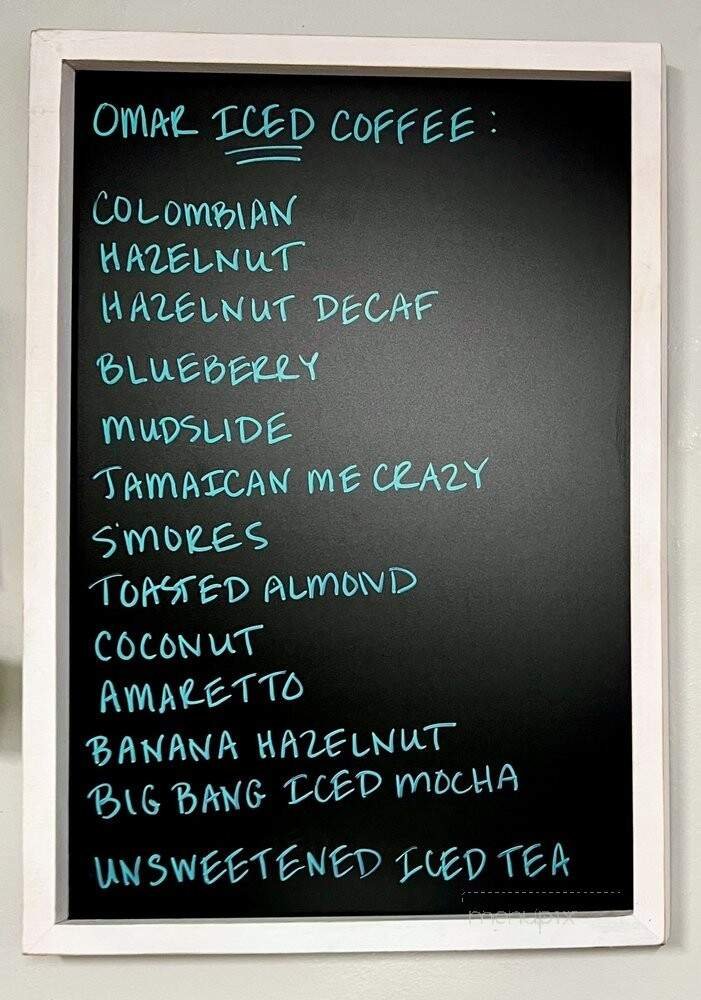 OMAR ICED COFFEE:
COLOMBIAN
HAZELNUT
HAZELNUT DECAF
BLUEBERRY
MUDSLIDE
JAMAICAN ME CRAZY
S'MORES
TOASTED ALMOND
COCONUT
AMARETTO
BANANA HAZELNUT
BIG BANG ICED MOCHA
UNSWEETENED ICED TEA
menupix